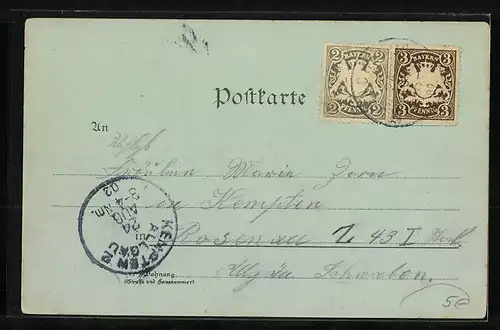 2 BAYERN 2
2 PFENNIG 2
3 BAYERN 3
3 PFENNIG 3
Postkarte
An
Fräulein Marie Zorn
in Kempten
Rosenau Z 43 I
Allgäu Schwaben.
Wohnung
(Straße und Hausnummer)
KEMPTEN
ALLGÄU
24
AUG
3-4 Nm.
02
5€